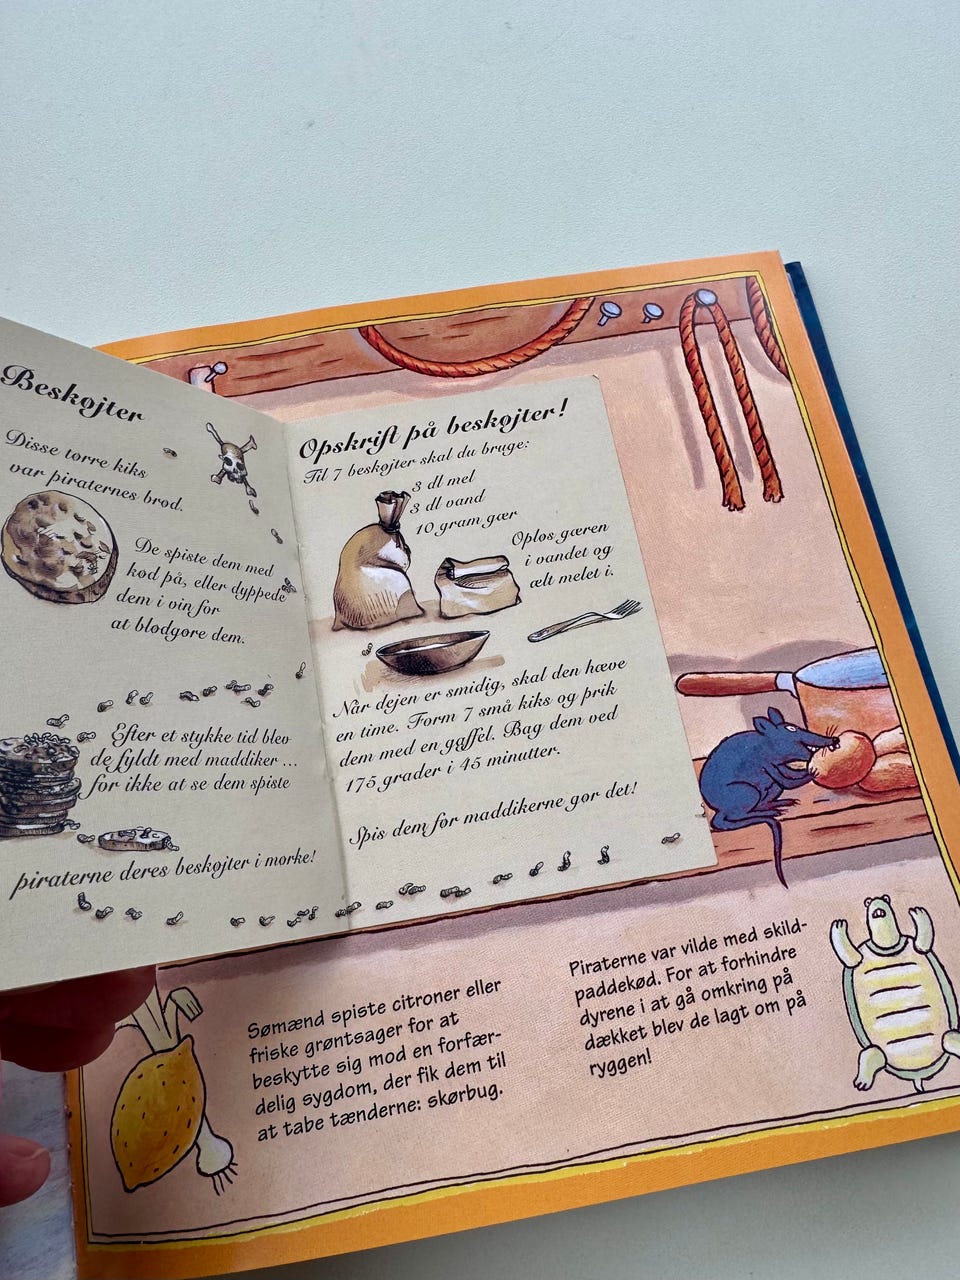 Beskøjter
Disse tørre kiks
var piraternes brød.
De spiste dem med
kød på, eller dyppede
dem i vin for
at blødgøre dem.
Efter et stykke tid blev
de fyldt med maddiker ...
for ikke at se dem spiste
piraterne deres beskøjter i mørke!
Opskrift på beskøjter!
Til 7 beskøjter skal du bruge:
3 dl mel
3 dl vand
10 gram gær
Opløs gæren
i vandet og
ælt melet i.
Når dejen er smidig, skal den hæve
en time. Form 7 små kiks og prik
dem med en gaffel. Bag dem ved
175 grader i 45 minutter.
Spis dem før maddikerne gør det!
Sømænd spiste citroner eller
friske grøntsager for at
beskytte sig mod en forfær-
delig sygdom, der fik dem til
at tabe tænderne: skørbug.
Piraterne var vilde med skild-
paddekød. For at forhindre
dyrene i at gå omkring på
dækket blev de lagt om på
ryggen!